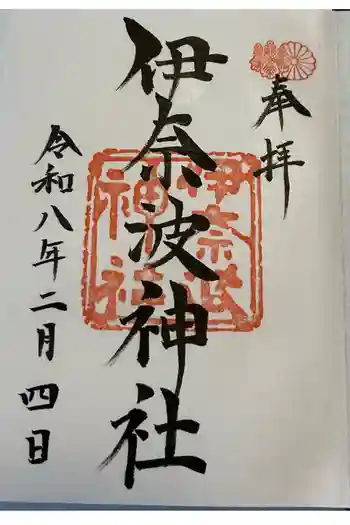 奉拝
伊奈波神社
伊奈波
神社
令和八年二月四日